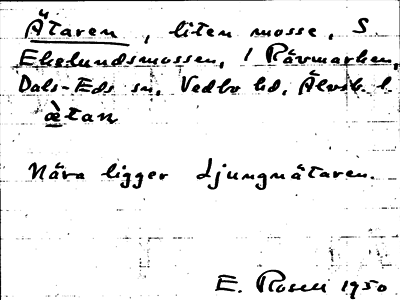 Ätaren, liten mosse, S
Ekelundsmossen, i Rävmarken,
Dals-Eds sn, Vedbo hd, Älvsb. l.
ætan
Nära ligger Ljungnätaren.
E. 1950